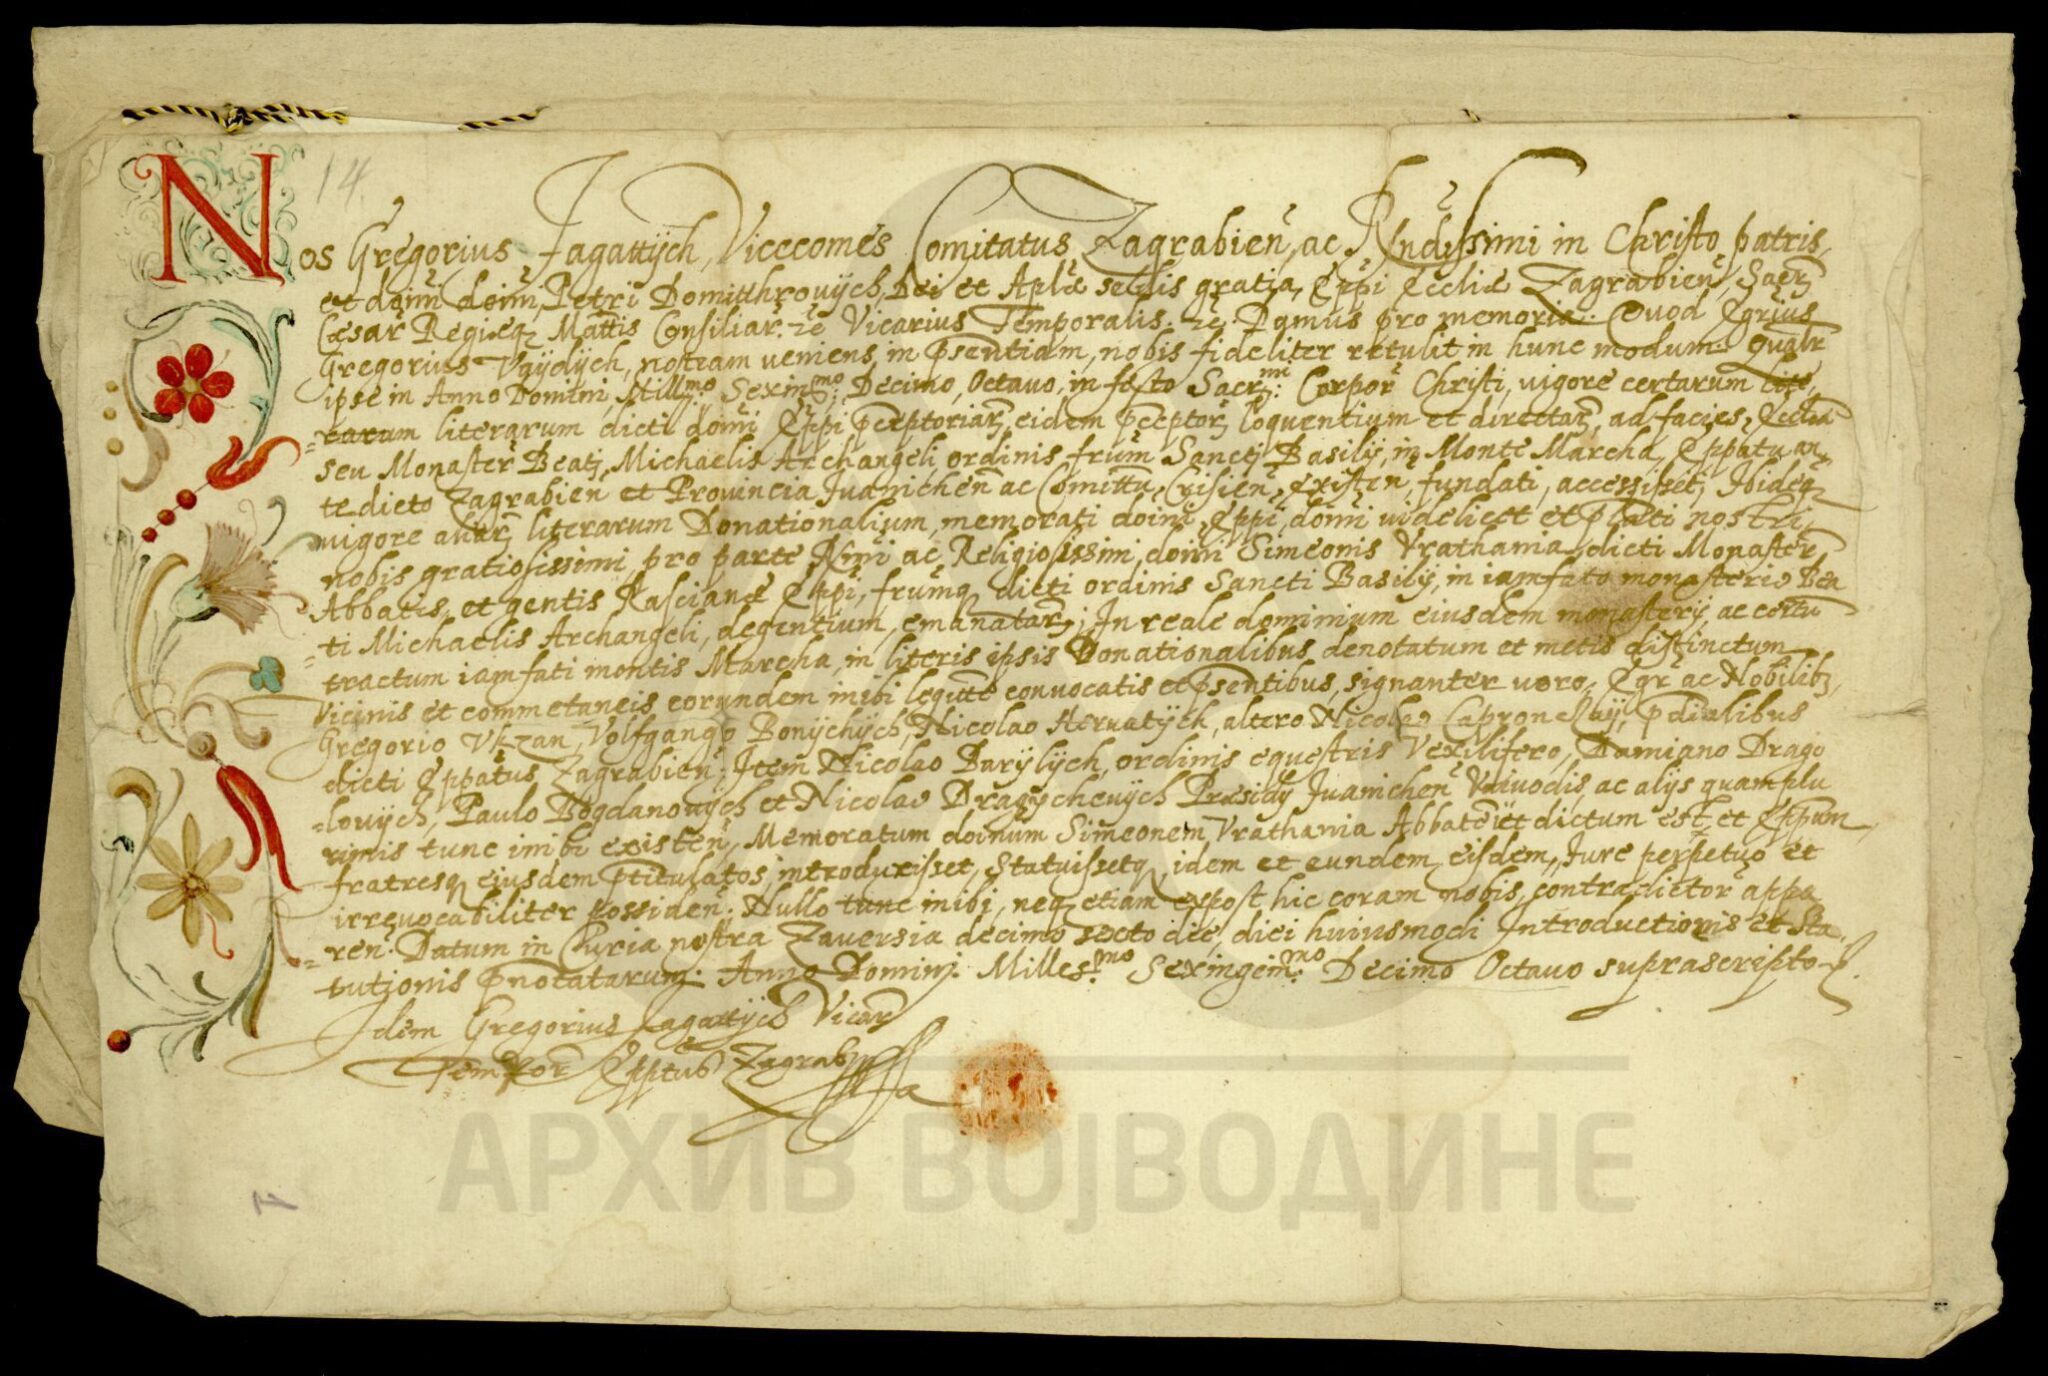 14.
Nos Gregorius Jagattÿch, Vicecomes Comitatus Zagrabien, ac Rndissimi in Christo patris,
et doini doini, Petri Domitthrouÿch, Dei et Aplæ sedis gratia, Eppi Eccliæ Zagrabien, Sacr
Cæsar Regieq Mattis Consiliar. zc Vicarius Temporalis. zc. Damus pro memoria. Quod Egrius
Gregorius Vaÿdÿch, nostram ueniens in psentiam, nobis fideliter retulit in hunc modum. Qualr
ipse in Anno Domini, Millmo: Sexinmo: Decimo, Octauo, in festo Sacrmi: Corpor Christi, uigore certarum lite,
=rarum literarum dicti doini Eppi pceptoriar, eidem pceptor loquentium et directar, ad facies, Eccliæ
seu Monaster Beati Michaelis Archangeli ordinis frum Sancti Basilij, in Monte Marcha, Eppatu an,
te dicto Zagrabien et Prouincia Iuanichen ac Comittu, Crisien, existen, fundati, accessisset, Ibideq
uigore aliar literarum Donationalium, memorati doini, Eppi, doini uidelicet et plati nostri,
nobis gratiosissimi, pro parte Rndi ac Religiosissimi doini Simeonis Vrathania, dicti Monaster
Abbatis, et gentis Rascianæ Eppi, frumq dicti ordinis Sancti Basilij, in iamfato monasterio Bea
=ti Michaelis Archangeli, degentium, emanatar; In reale dominium eiusdem monasterij, ac certu
tractum iamfati montis Marcha, in literis ipsis Donationalibus denotatum et metis distinctum
Vicinis et commetaneis eorundem inibi legitte conuocatis et psentibus, signanter uero, Egr ac Nobilib,
Gregorio Vkzan, Volfgango Bonÿchÿch, Nicolao Heruatÿch, altero Nicolao Capronckaÿ, pdialibus
dicti Eppatus Zagrabien; Item Nicolao Darÿlÿch, ordinis equestris Vexilifero, Damiano Drago
=louÿch, Paulo Bogdanouÿch et Nicolao Dragÿcheuÿch Præsidy Iuanichen Vaiuodis, ac alijs quamplu
rimis tunc inibi existen, Memoratum doinum Simeonem Vrathania Abbate ut dictum est, et Eppum,
fratresq eiusdem ptitulatos, introduxisset, Statuissetq idem et eundem eisdem, Iure perpetuo et
irreuocabiliter possiden. Nullo tunc inibi, neq etiam expost hic coram nobis, contradictor appa
=ren. Datum in Curia nostra Zauersia decimo sexto die, diei huiusmodi Introductionis et Sta,
tutionis pnotatarum. Anno Domini. Milles.mo Sexingein.mo Decimo Octauo suprascripto.
Idem Gregorius Jagattÿch Vicar
Tempor Epptus Zagrab
АРХИВ ВОЈВОДИНЕ